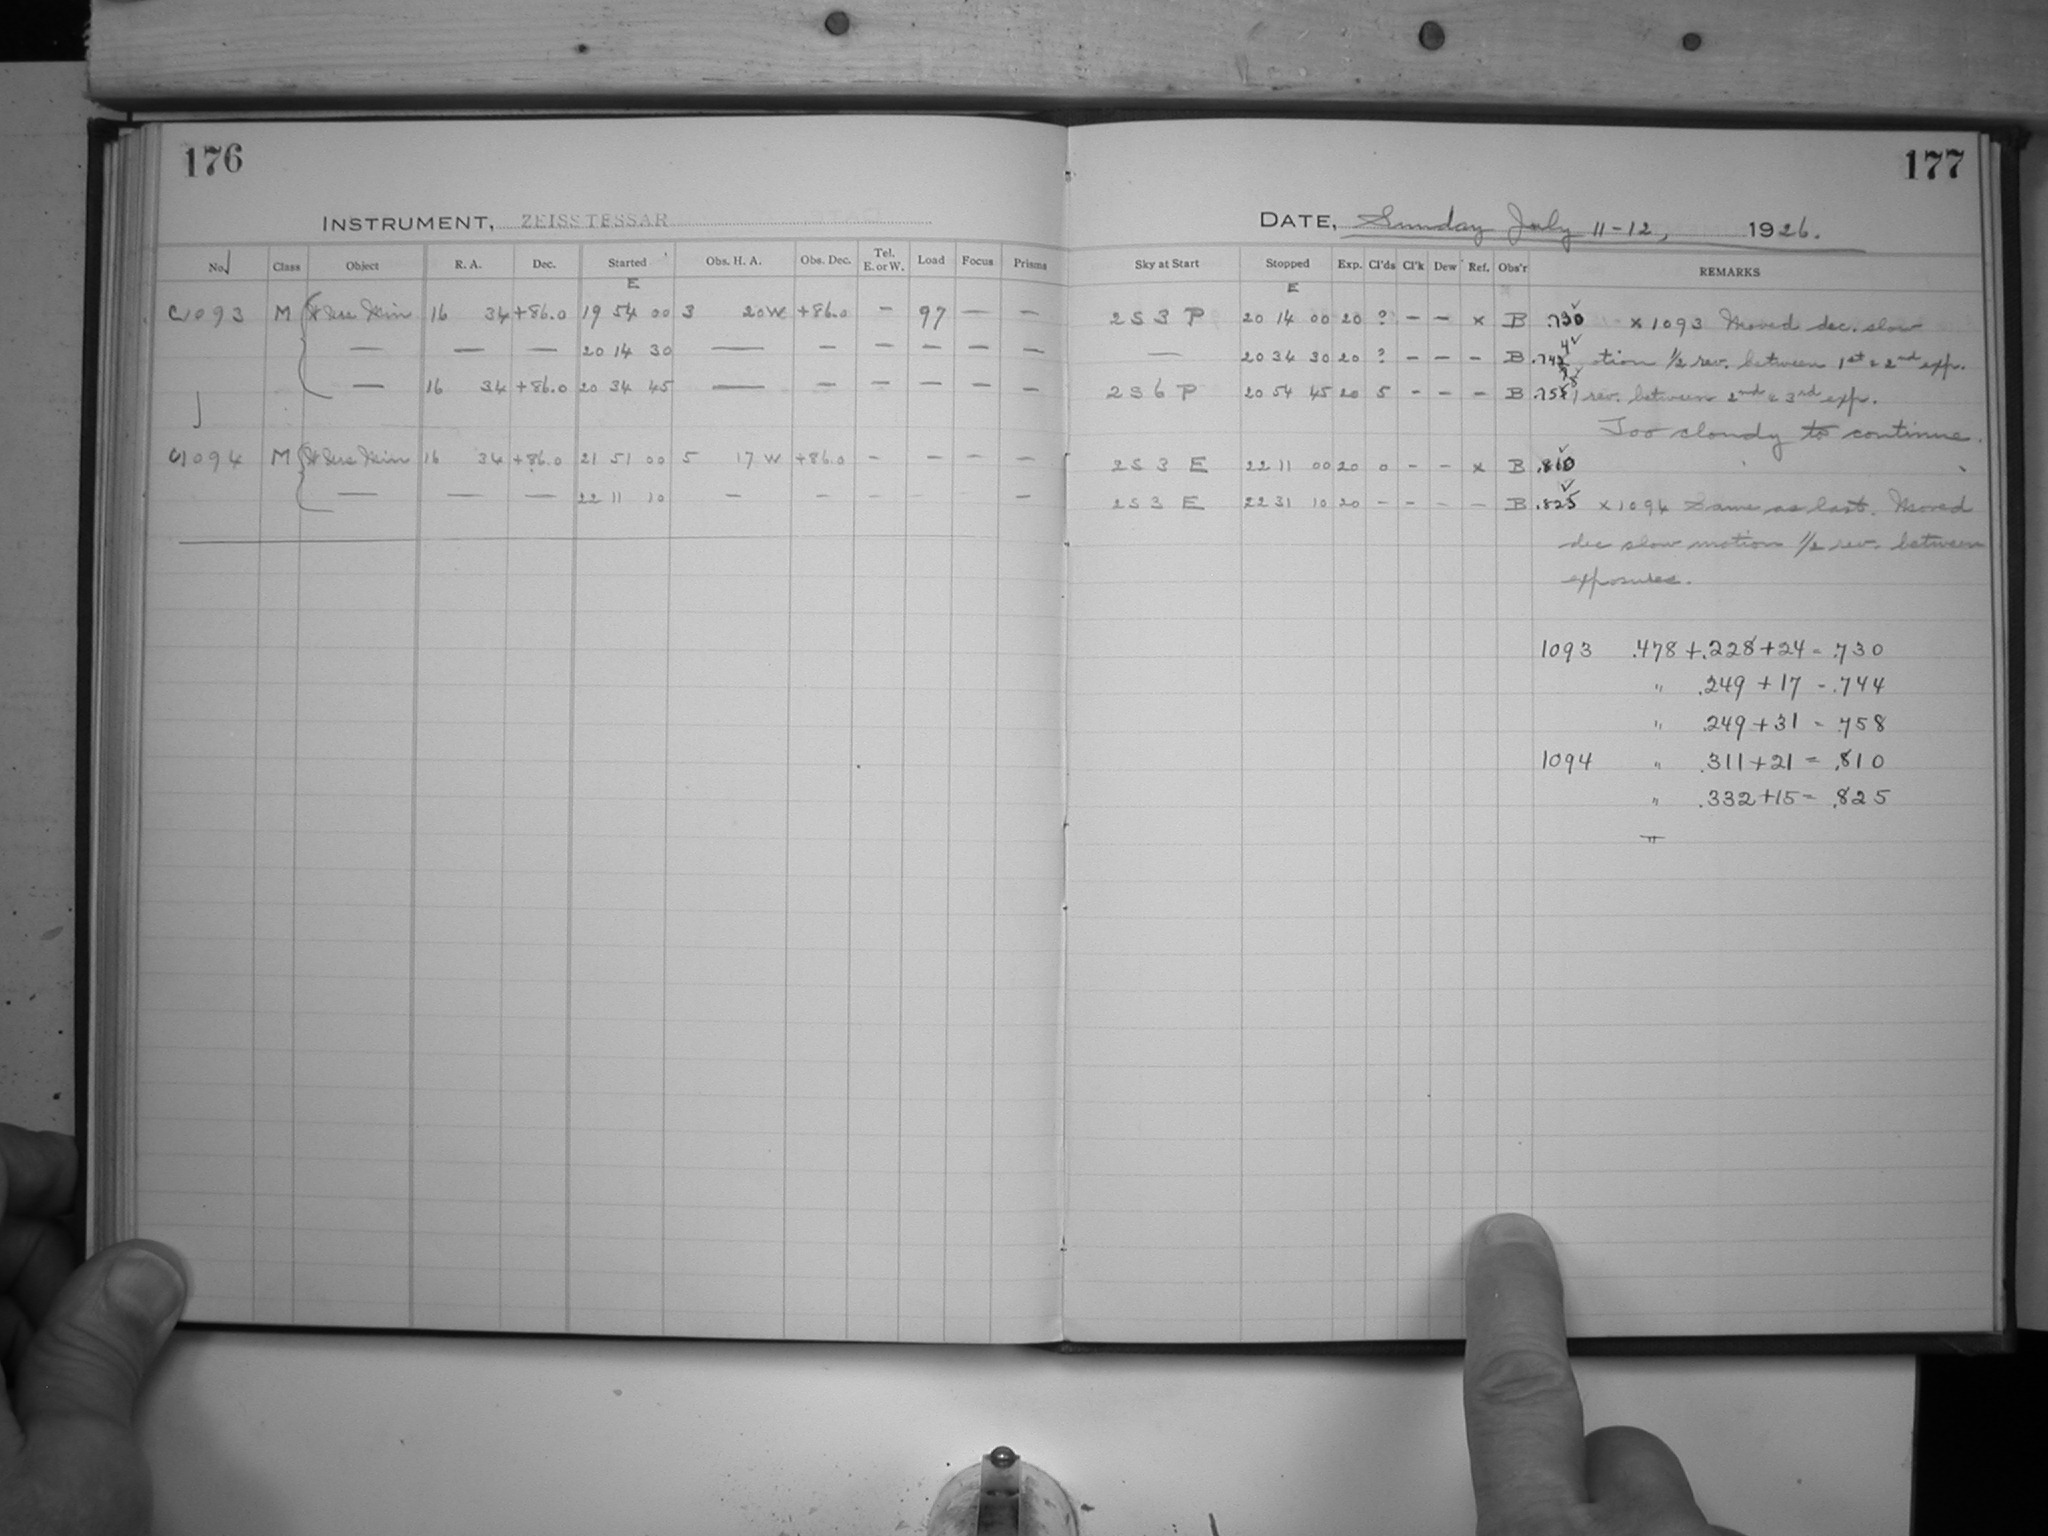 176
INSTRUMENT, ZEISS TESSAR
No. Class Object R. A. Dec. Started Obs. H. A. Obs. Dec. Tel. E. or W. Load Focus Prisms
E
1093 M Min 16 34 +86.0 19 54 00 3 20 W +86.0 — 97 — —
— — — 20 14 30 — — — — — —
— 16 34 +86.0 20 34 45 — — — — — —
1094 M Min 16 34 +86.0 21 51 00 5 17 W +86.0 — — — —
— — — 22 11 10 — — — — — —
177
DATE, Sunday July 11-12, 1926.
Sky at Start Stopped Exp. Cl'ds Cl'k Dew Ref. Obs'r REMARKS
E
2 S 3 P 20 14 00 20 ? — — x B .730 x 1093 Moved dec. slow
— 20 34 30 20 ? — — — B .744 otion 1/2 rev. between 1st & 2nd exp.
2 S 6 P 20 54 45 20 5 — — — B .758 1 rev. between 2nd & 3rd exp.
Too cloudy to continue.
2 S 3 E 22 11 00 20 0 — — x B .810
2 S 3 E 22 31 10 20 — — — — B .825 x 1094 Same as last. Moved
dec slow motion 1/2 rev. between
exposures.
1093 .478 + .228 + 24 = .730
" .249 + 17 = .744
" .249 + 31 = .758
1094 " .311 + 21 = .810
" .332 + 15 = .825
"